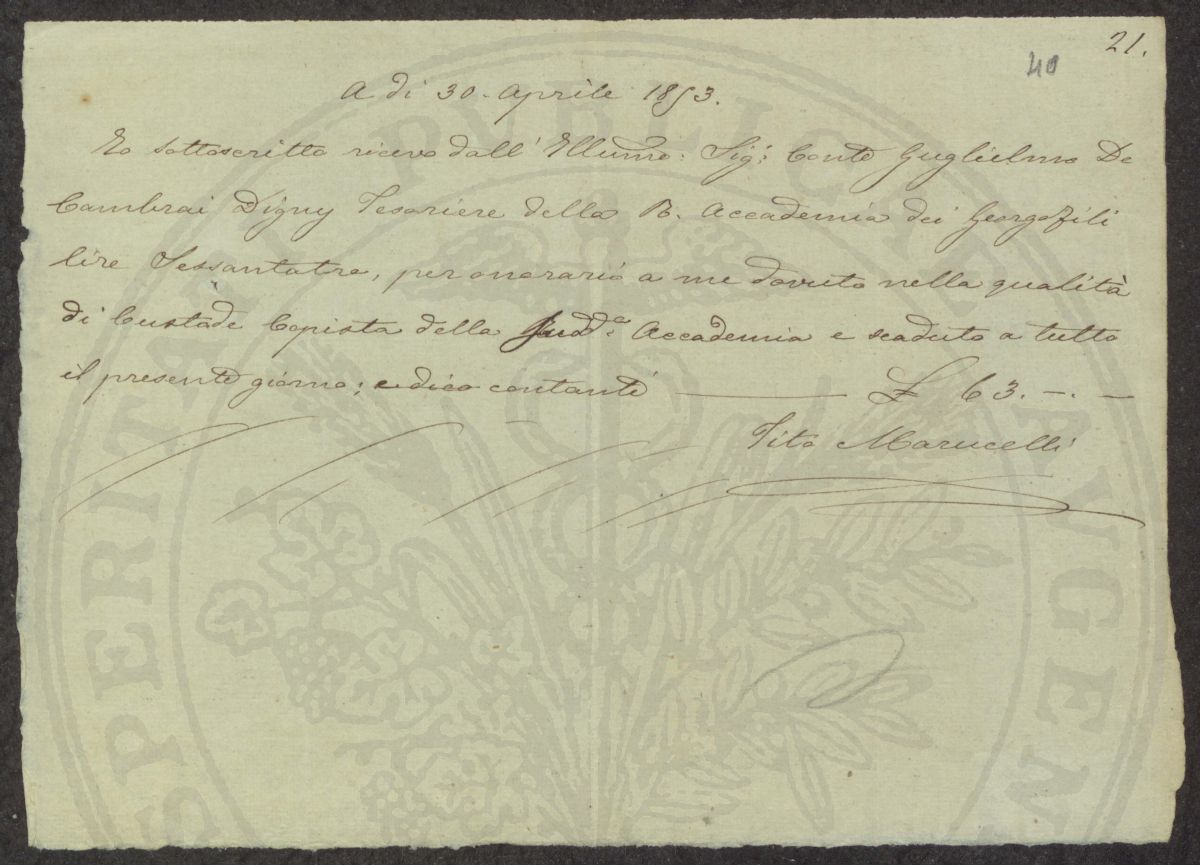 21.
40
A di 30. Aprile 1853.
Io sottoscritto ricevo dall' Illumo: Sig: Conte Guglielmo De
Cambrai Digny Tesoriere della R. Accademia dei Georgofili
lire Sessantatre, per onorario a me dovuto nella qualità
di Custode Copista della Sudd.a Accademia e scaduto a tutto
il presente giorno; e dico contanti ——— £ 63. -. -
Tito Marucelli
PROSPERITATI PUBLICAE AVGEN